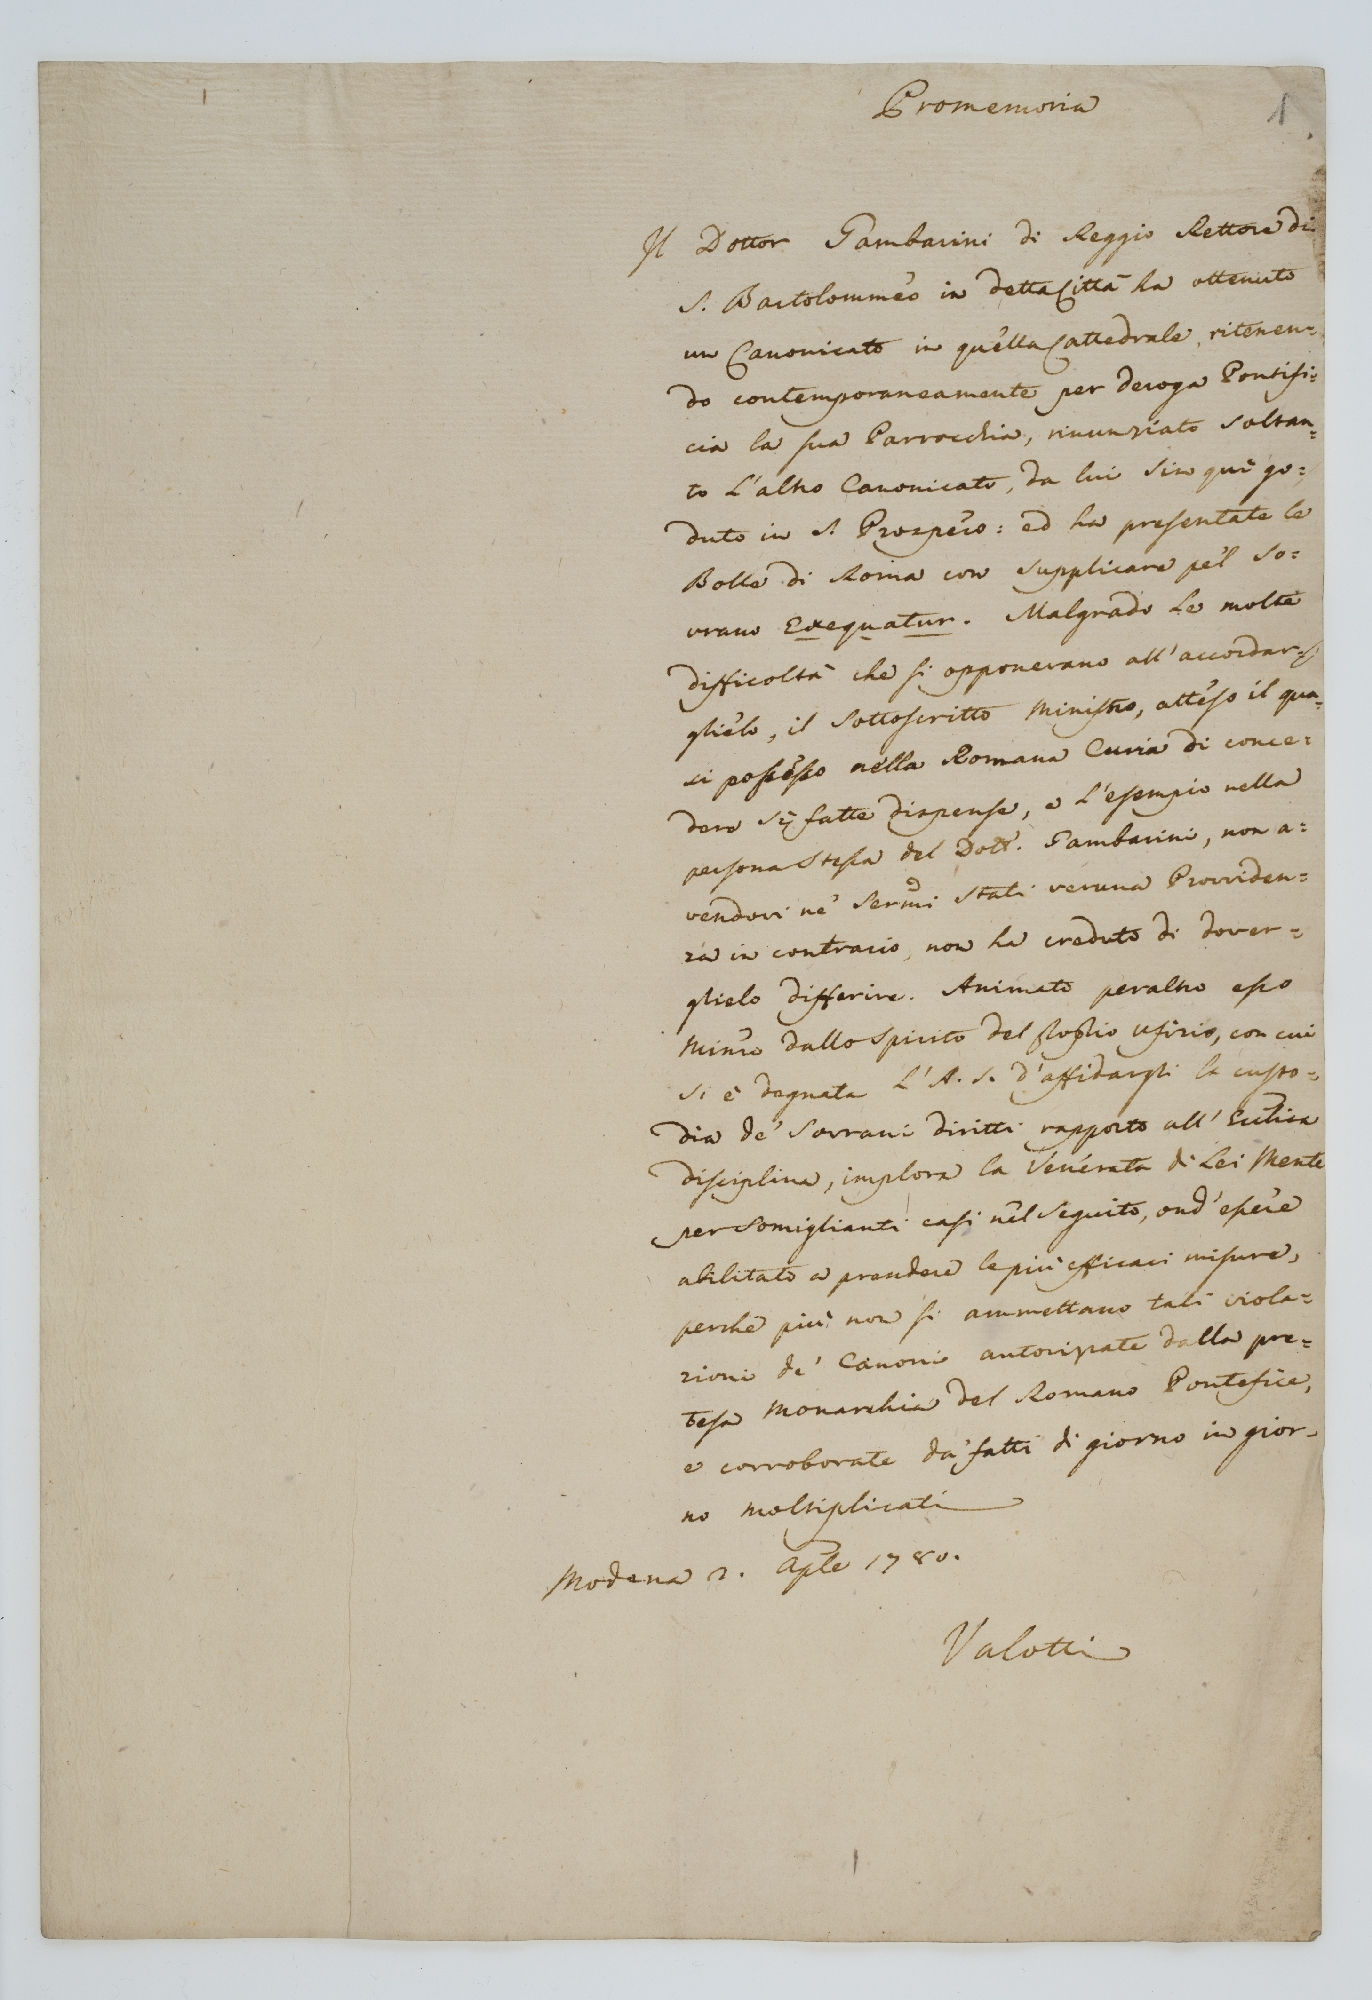 Promemoria
1
Il Dottor Gambarini di Reggio Rettore di
S. Bartolommeo in detta Città ha ottenuto
un Canonicato in quella Cattedrale, ritenen=
do contemporaneamente per deroga Pontifi=
cia la sua Parrocchia, rinunziato soltan=
to l'altro Canonicato, da lui sin quì go=
duto in S. Prospero: ed ha presentate le
Bolle di Roma con supplicare pel So=
vrano Exequatur. Malgrado le molte
difficoltà che si opponevano all'accordar=
glielo, il sottoscritto Ministro, atteso il qua=
si possesso nella Romana Curia di conce=
dere sì fatte dispense, e l'esempio nella
persona stessa del Dott. Gambarini, non a=
vendovi ne' Sermi Stati veruna Providen=
za in contrario, non ha creduto di dover=
glielo differire. Animato peraltro esso
Minro dallo Spirito del proprio ufizio, con cui
si è degnata l'A. S. d'affidargli la custo=
dia de' Sovrani diritti rapporto all' Ecclica
disciplina, implora la Venerata di Lei Mente
per somiglianti casi nel seguito, ond'essere
abilitato a prendere le più efficaci misure,
perchè più non si ammettano tali viola=
zioni de' Canoni autorizzate dalla pre=
tesa Monarchia del Romano Pontefice,
e corroborate da' fatti di giorno in gior=
no moltiplicati
Modena 2. Aple 1780.
Valotti